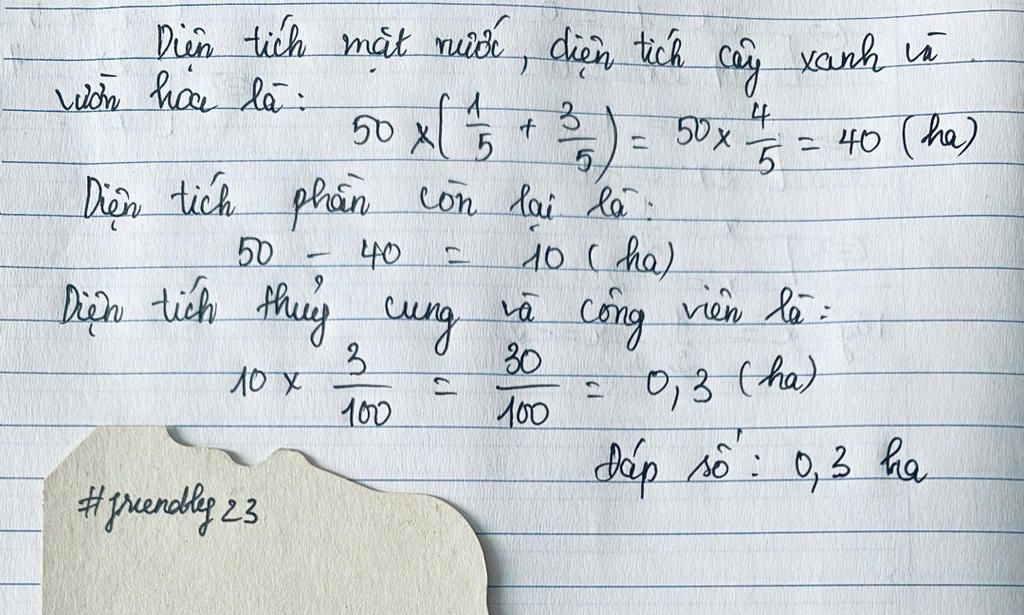 Diện tích mặt nước, diện tích cây xanh và
vườn hoa là:
50 × (1/5 + 3/5) = 50 × 4/5 = 40 (ha)
Diện tích phần còn lại là:
50 - 40 = 10 (ha)
Diện tích thuỷ cung và công viên là:
10 × 3/100 = 30/100 = 0,3 (ha)
Đáp số: 0,3 ha